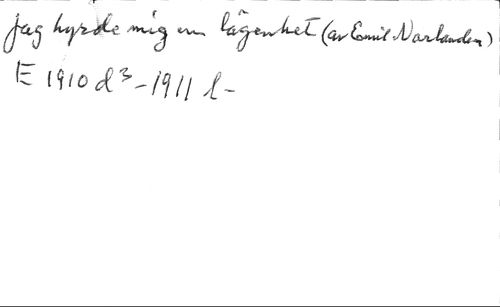 Jag hyrde mig en lägenhet (av Emil Norlander)
E 1910 d³ - 1911 l -